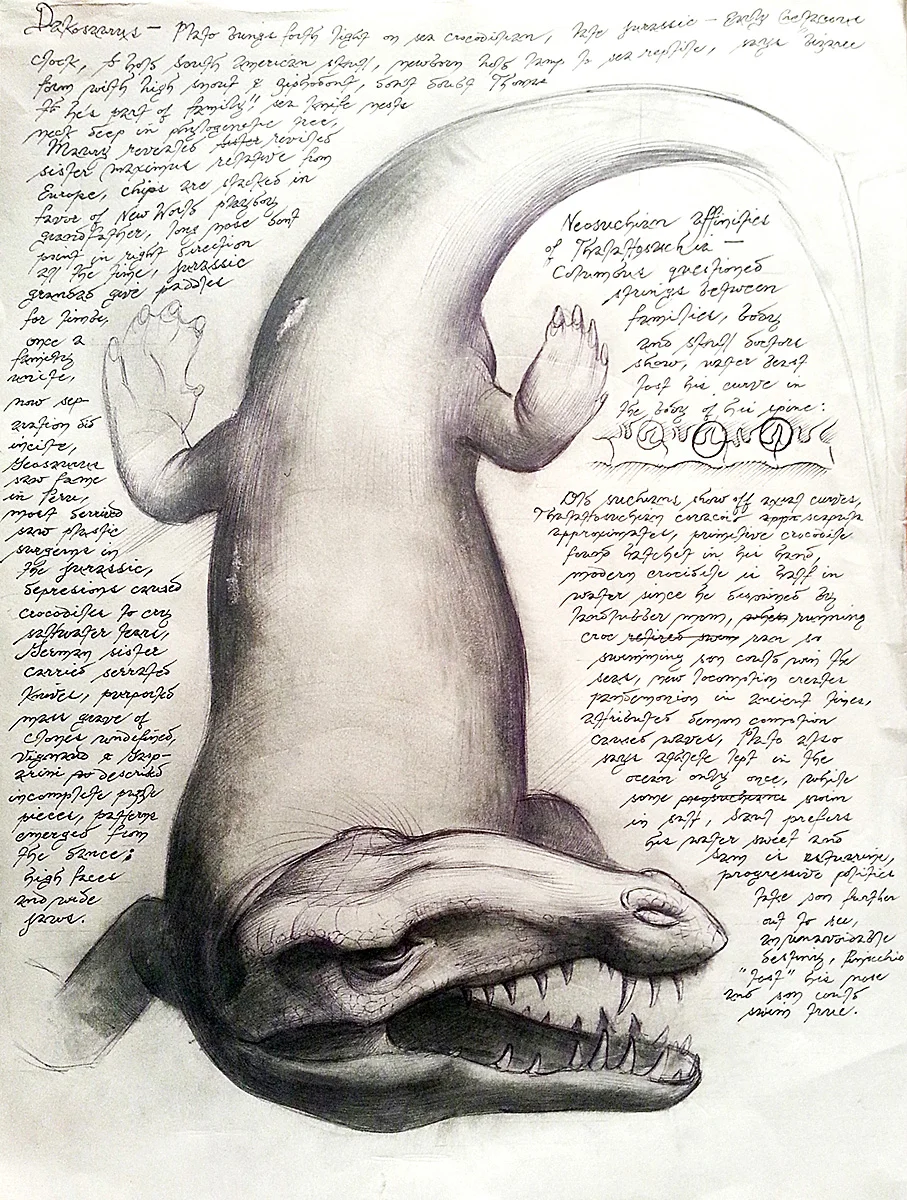 Dakosaurus — Plato brings forth light on sea crocodilian, late Jurassic — Early Cretaceous
clock, to hold South American skull, newborn holds lamp to sea reptile, says "bizarre
form with high snout & ziphodont, don't doubt Thomas
he's part of family!" sea knife nests
neck deep in phylogenetic tree,
revealed sister revised
sister maximus relative from
Europe, chips are stacked in
favor of New World playboy
grandfather, long nose don't
point in right direction
all the time, Jurassic
grandad give paddles
for limbs,
once a
family
unite,
now sep-
aration did
incite,
Geosaurus
saw fame
in Peru,
most derived
saw plastic
surgeons in
the Jurassic,
depresions caused
crocodiles to cry
saltwater tears,
German sister
carried serrated
knives, purported
mass grave of
clones undefined,
Vignaud & Gasp-
arini so described
incomplete puzzle
pieces, patterns
emerged from
the dance;
high faces
and wide
jaws.
Neosuchian affinities
of Thalattosuchia —
Columbus questioned
strings between
families, body
and skull doctors
show, water beast
lost his curve in
the body of his spine:
Old suchians show off axial curves,
Thalattosuchian coracoid and scapula
approximates, primitive crocodile
found hatchet in his hand,
modern crocodile is half in
water since he destined by
landlubber mom, running
croc retired swam ran so
swimming son could win the
seas, new locomotion creates
pandemonion in ancient times,
attributed demon comotion
caused waves, Plato also
says athlete lept in the
ocean only once, while
some swim
in salt, Saul prefers
his water sweet and
Sam is esturarine,
progressive politics
take son further
out to see,
an unavoidable
destiny, Pinocchio
"lost" his nose
and son could
swim true.